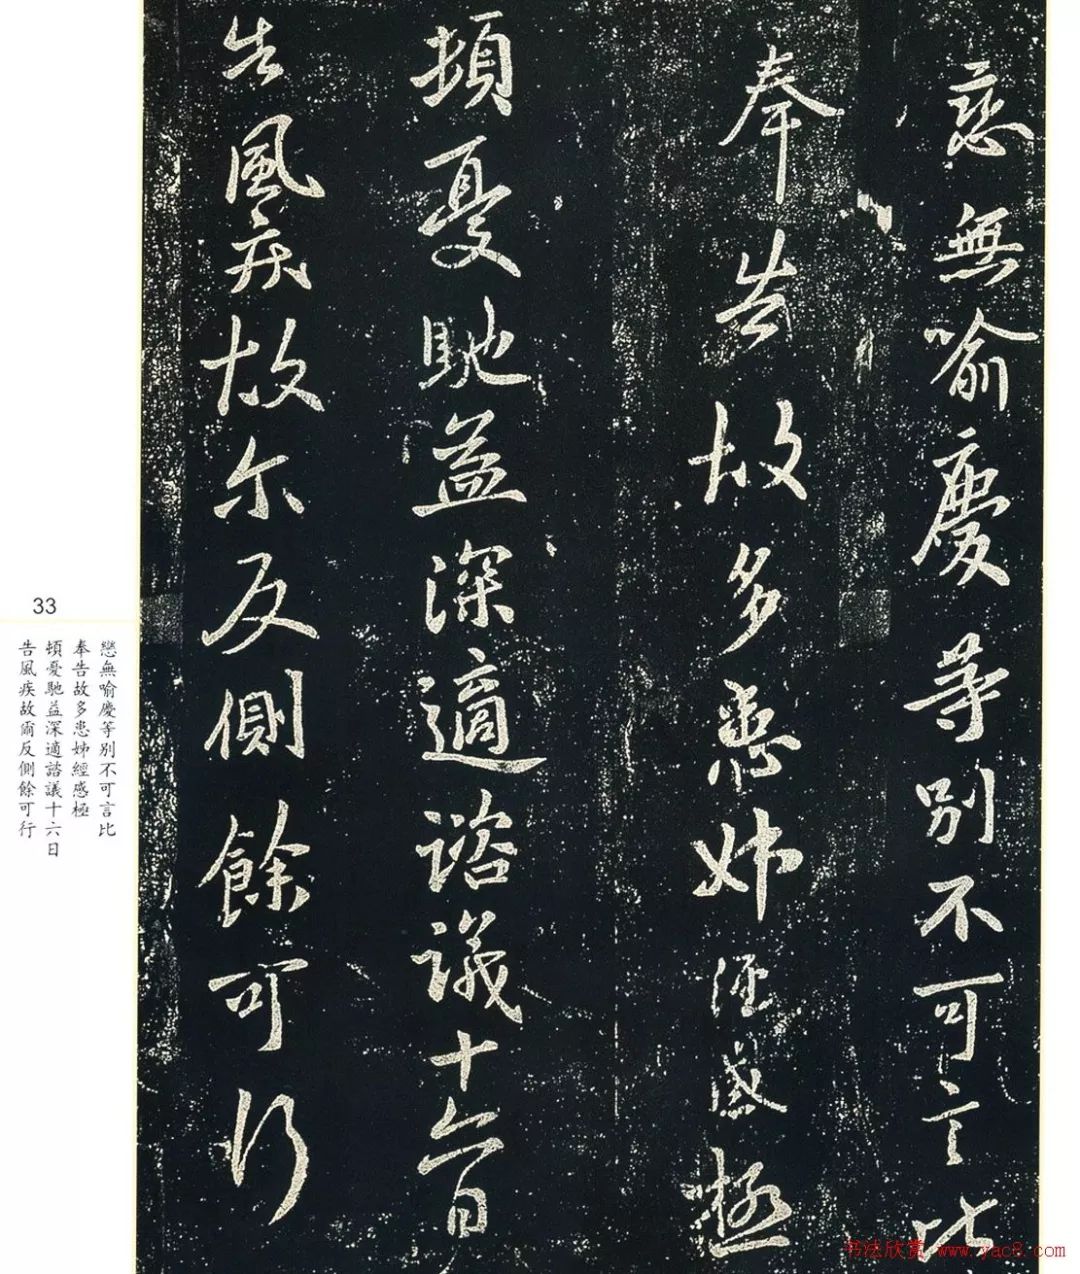 戀無喻慶等別不可言比
奉告故多患姊經感極
頓憂馳益深適諮議十六日
告風疾故尔反側餘可行
33
戀無喻慶等别不可言比
奉告故多患姊經感極
頓憂馳益深適諮議十六日
告風疾故爾反側餘可行
书法欣赏 www.yac8.com